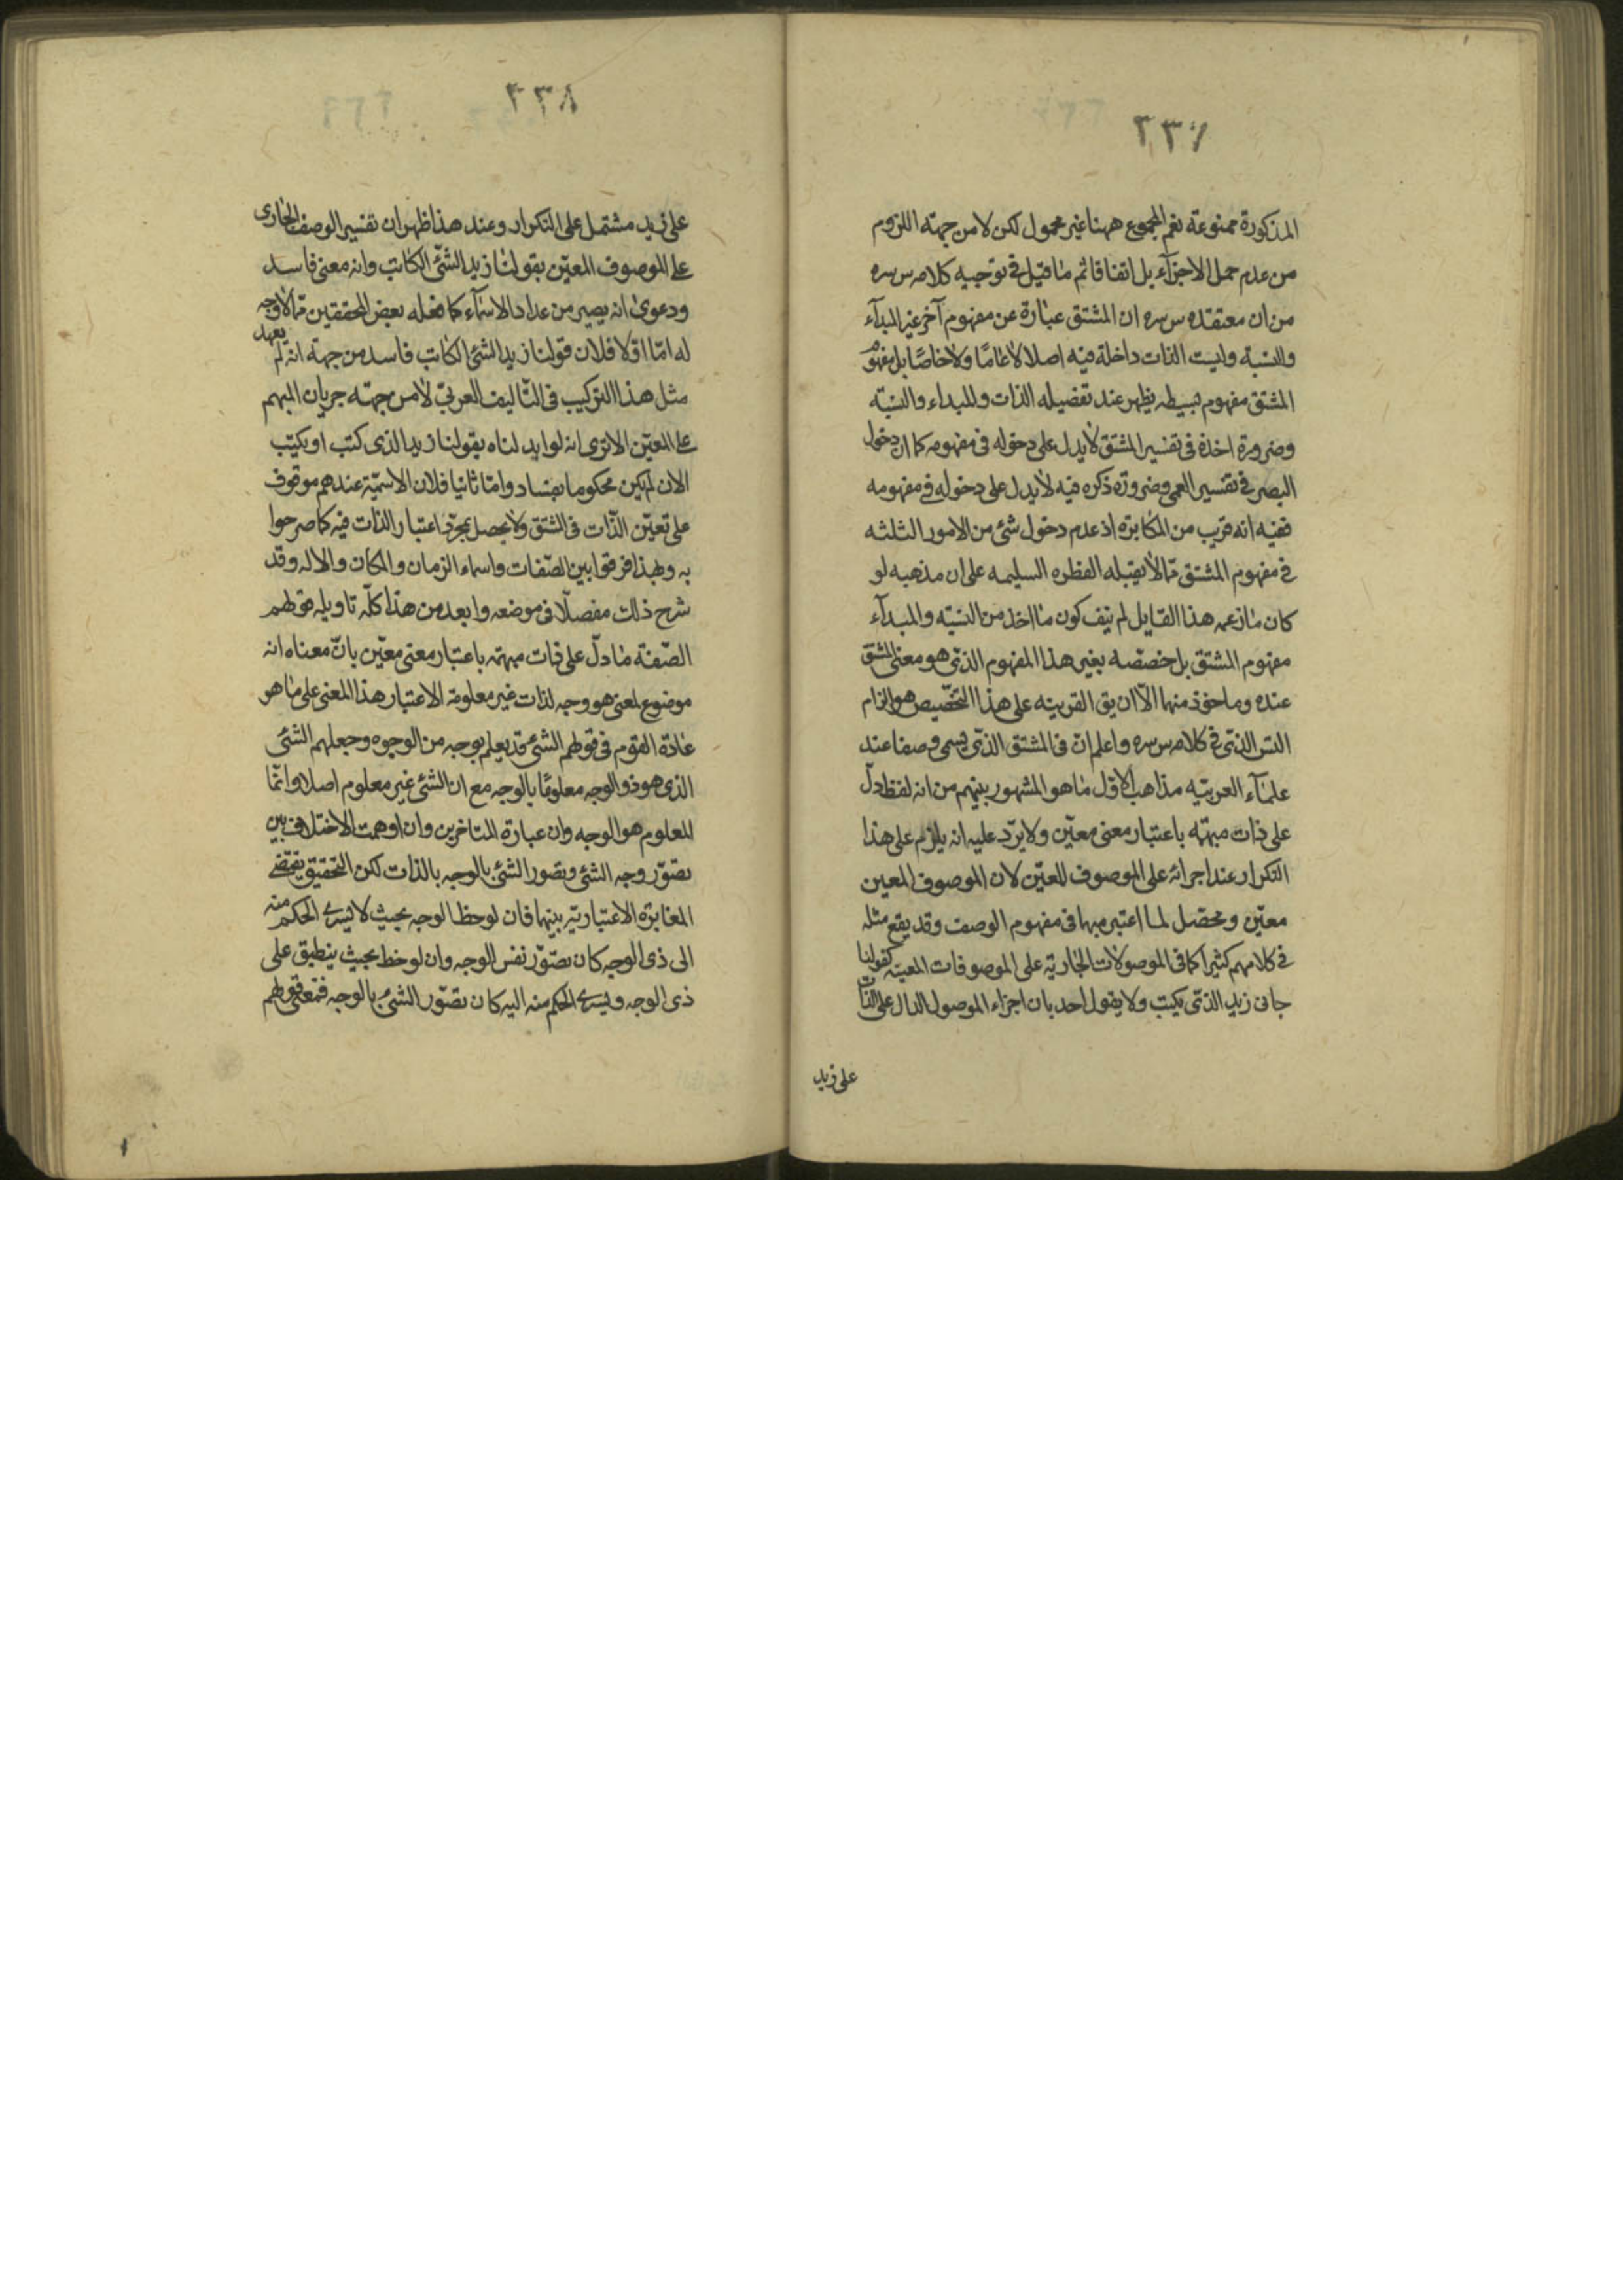 ٢٣٧
المذكورة ممنوعة نعم المجموع ههنا غير محمول لكن لا من جهة اللزوم
من عدم حمل الاجزآء بل اتفاقا ثم ما قيل في توجيه كلامه س سره
من ان معتقده س سره ان المشتق عبارة عن مفهوم آخر غير المبدآء
والنسبة وليست الذات داخلة فيه اصلا لا عامًا ولا خاصًا بل مفهوم
المشتق مفهوم بسيط يظهر عند تفصيله الذات والمبداء والنسبة
وضرورة اخذه في تفسير المشتق لا يدل على دخوله في مفهومه كما ان دخول
البصر في تفسير العمى وضرورة ذكره فيه لا يدل على دخوله في مفهومه
ففيه انه قريب من المكابرة اذ عدم دخول شئ من الامور الثلثه
في مفهوم المشتق مما لا يقبله الفطره السليمه على ان مذهبه لو
كان ما زعمه هذا القايل لم ينف كون ما اخذ من النسبة والمبدآء
مفهوم المشتق بل خصصه بغير هذا المفهوم الذى هو معنى المشتق
عنده وماخوذ منهما الّا ان يق القرينه على هذا التخصيص هو الزام
السّ الذى في كلامه س سره واعلم ان فى المشتق الذى يسمى وصفا عند
علمآء العربيّه مذاهب الاوّل ما هو المشهور بينهم من انه لفظ دلّ
على ذات مبهمه باعتبار معنى معيّن ولا يرد عليه انه يلزم على هذا
التكرار عند اجرائه على الموصوف المعيّن لان الموصوف المعين
معيّن ومحصّل لما اعتبر مبهما فى مفهوم الوصف وقد يقع مثله
في كلامهم كثيرا كما فى الموصولات الجارية على الموصوفات المعينه كقولنا
جانى زيد الذى يكتب ولا يقول احد بان اجراء الموصول الدال على الذات
على زيد
٢٣٨
على زيد مشتمل على التكرار وعند هذا ظهر ان تفسير الوصف الجارى
على الموصوف المعيّن بقولنا زيد الشئ الكاتب وانه معنى فاسد
ودعوى انه يصير من عداد الاسمآء كما فعله بعض المحققين مما لا وجه
له امّا اوّلا فلان قولنا زيد الشئ الكاتب فاسد من جهة انه لم يعهد
مثل هذا التركيب فى التأليف العربىّ لا من جهة جريان المبهم
على المعيّن الا ترى انه لو ابدلناه بقولنا زيد الذى كتب او يكتب
الان لم يكن محكوما بفساد وامّا ثانيا فلان الاسميّة عندهم موقوف
على تعيّن الذّات فى المشتق ولا يحصل بمجرّد اعتبار الذات فيه كما صرحوا
به ولهذا فرقوا بين الصّفات واسماء الزمان والمكان والاله وقد
شرح ذلك مفصلّا فى موضعه وابعد من هذا كلّه تاويله قولهم
الصّفة ما دلّ على ذات مبهمه باعتبار معنى معيّن بانّ معناه انه
موضوع لمعنى هو وجه لذات غير معلومة الا عتبار هذا المعنى على ما هو
عادة القوم فى قولهم الشئ قد يعلم بوجه من الوجوه وجعلهم الشئ
الذى هو ذو الوجه معلومًا بالوجه مع ان الشئ غير معلوم اصلا وانّما
المعلوم هو الوجه وان عبارة المتاخرين وان اوهمت الاختلاف بين
تصوّر وجه الشئ وتصور الشئ بالوجه بالذات لكن التحقيق يقتضى
المغايرة الاعتباريّه بينهما فان لوحظ الوجه بحيث لا يسرى الحكم منه
الى ذى الوجه كان تصوّر نفس الوجه وان لوحظ بحيث ينطبق على
ذى الوجه ويسرى الحكم منه اليه كان تصوّر الشئ بالوجه فمعنى قولهم